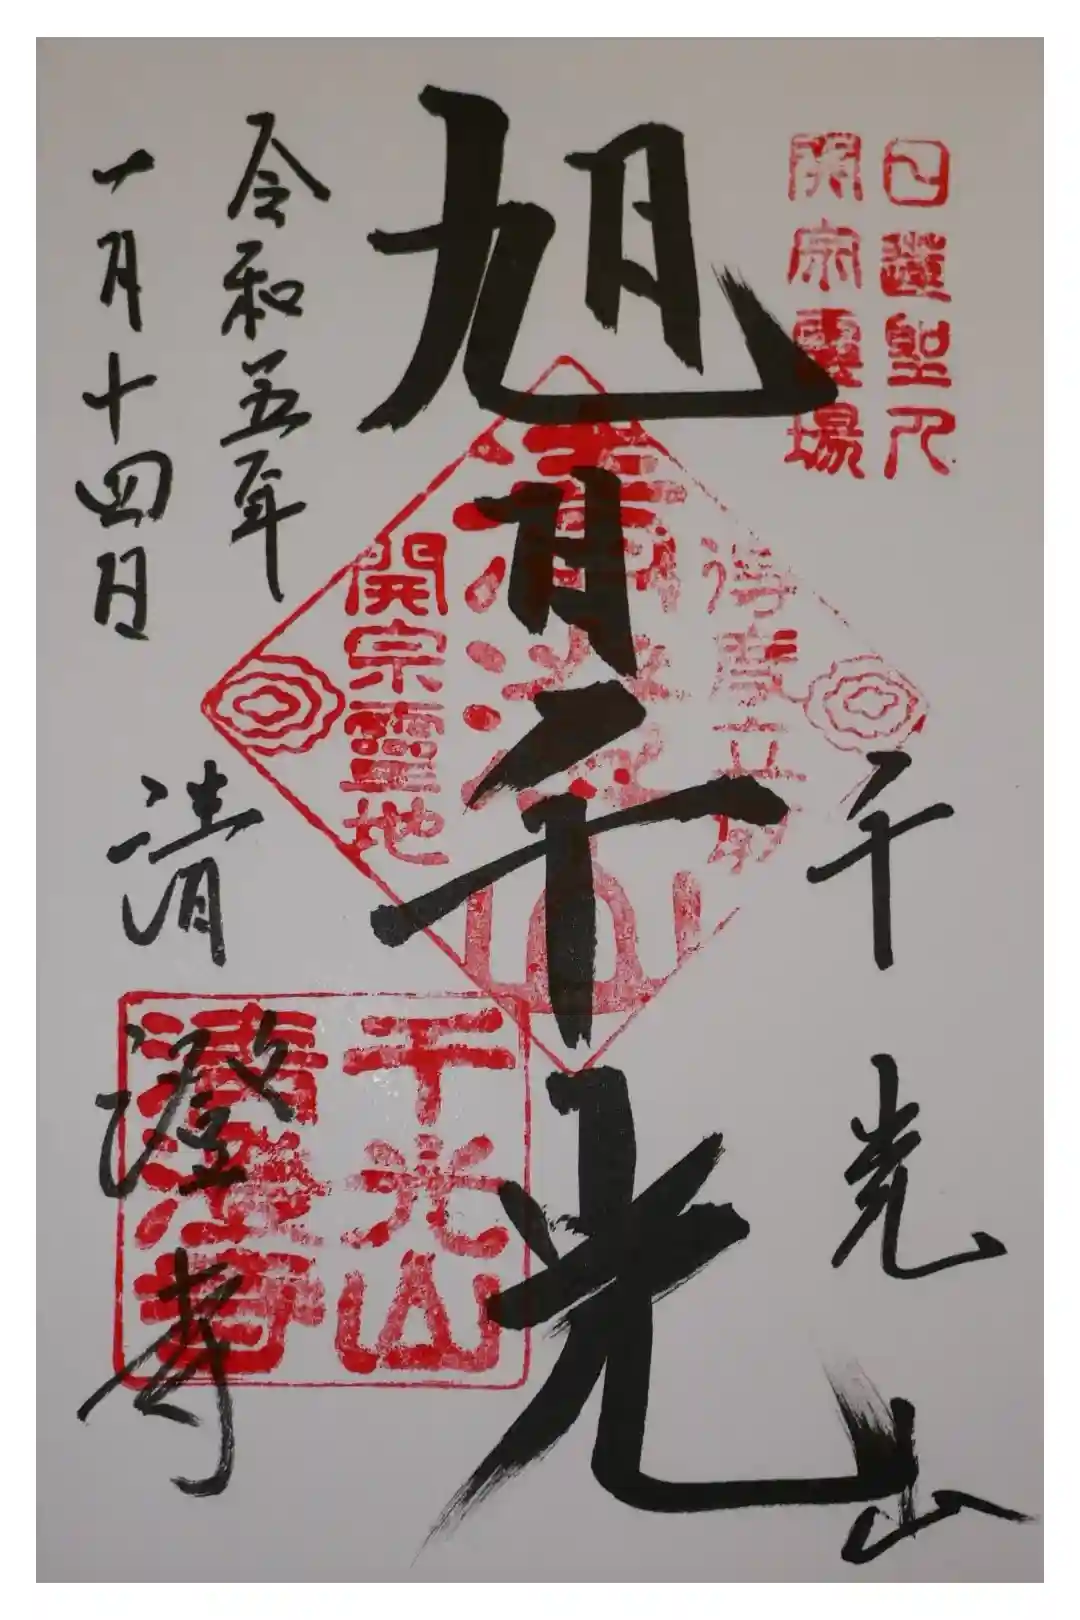 日蓮聖人
開宗靈場
千光山
旭日千光
清澄山
開宗靈地
令和五年
一月十四日
清澄寺
千光山
清澄寺